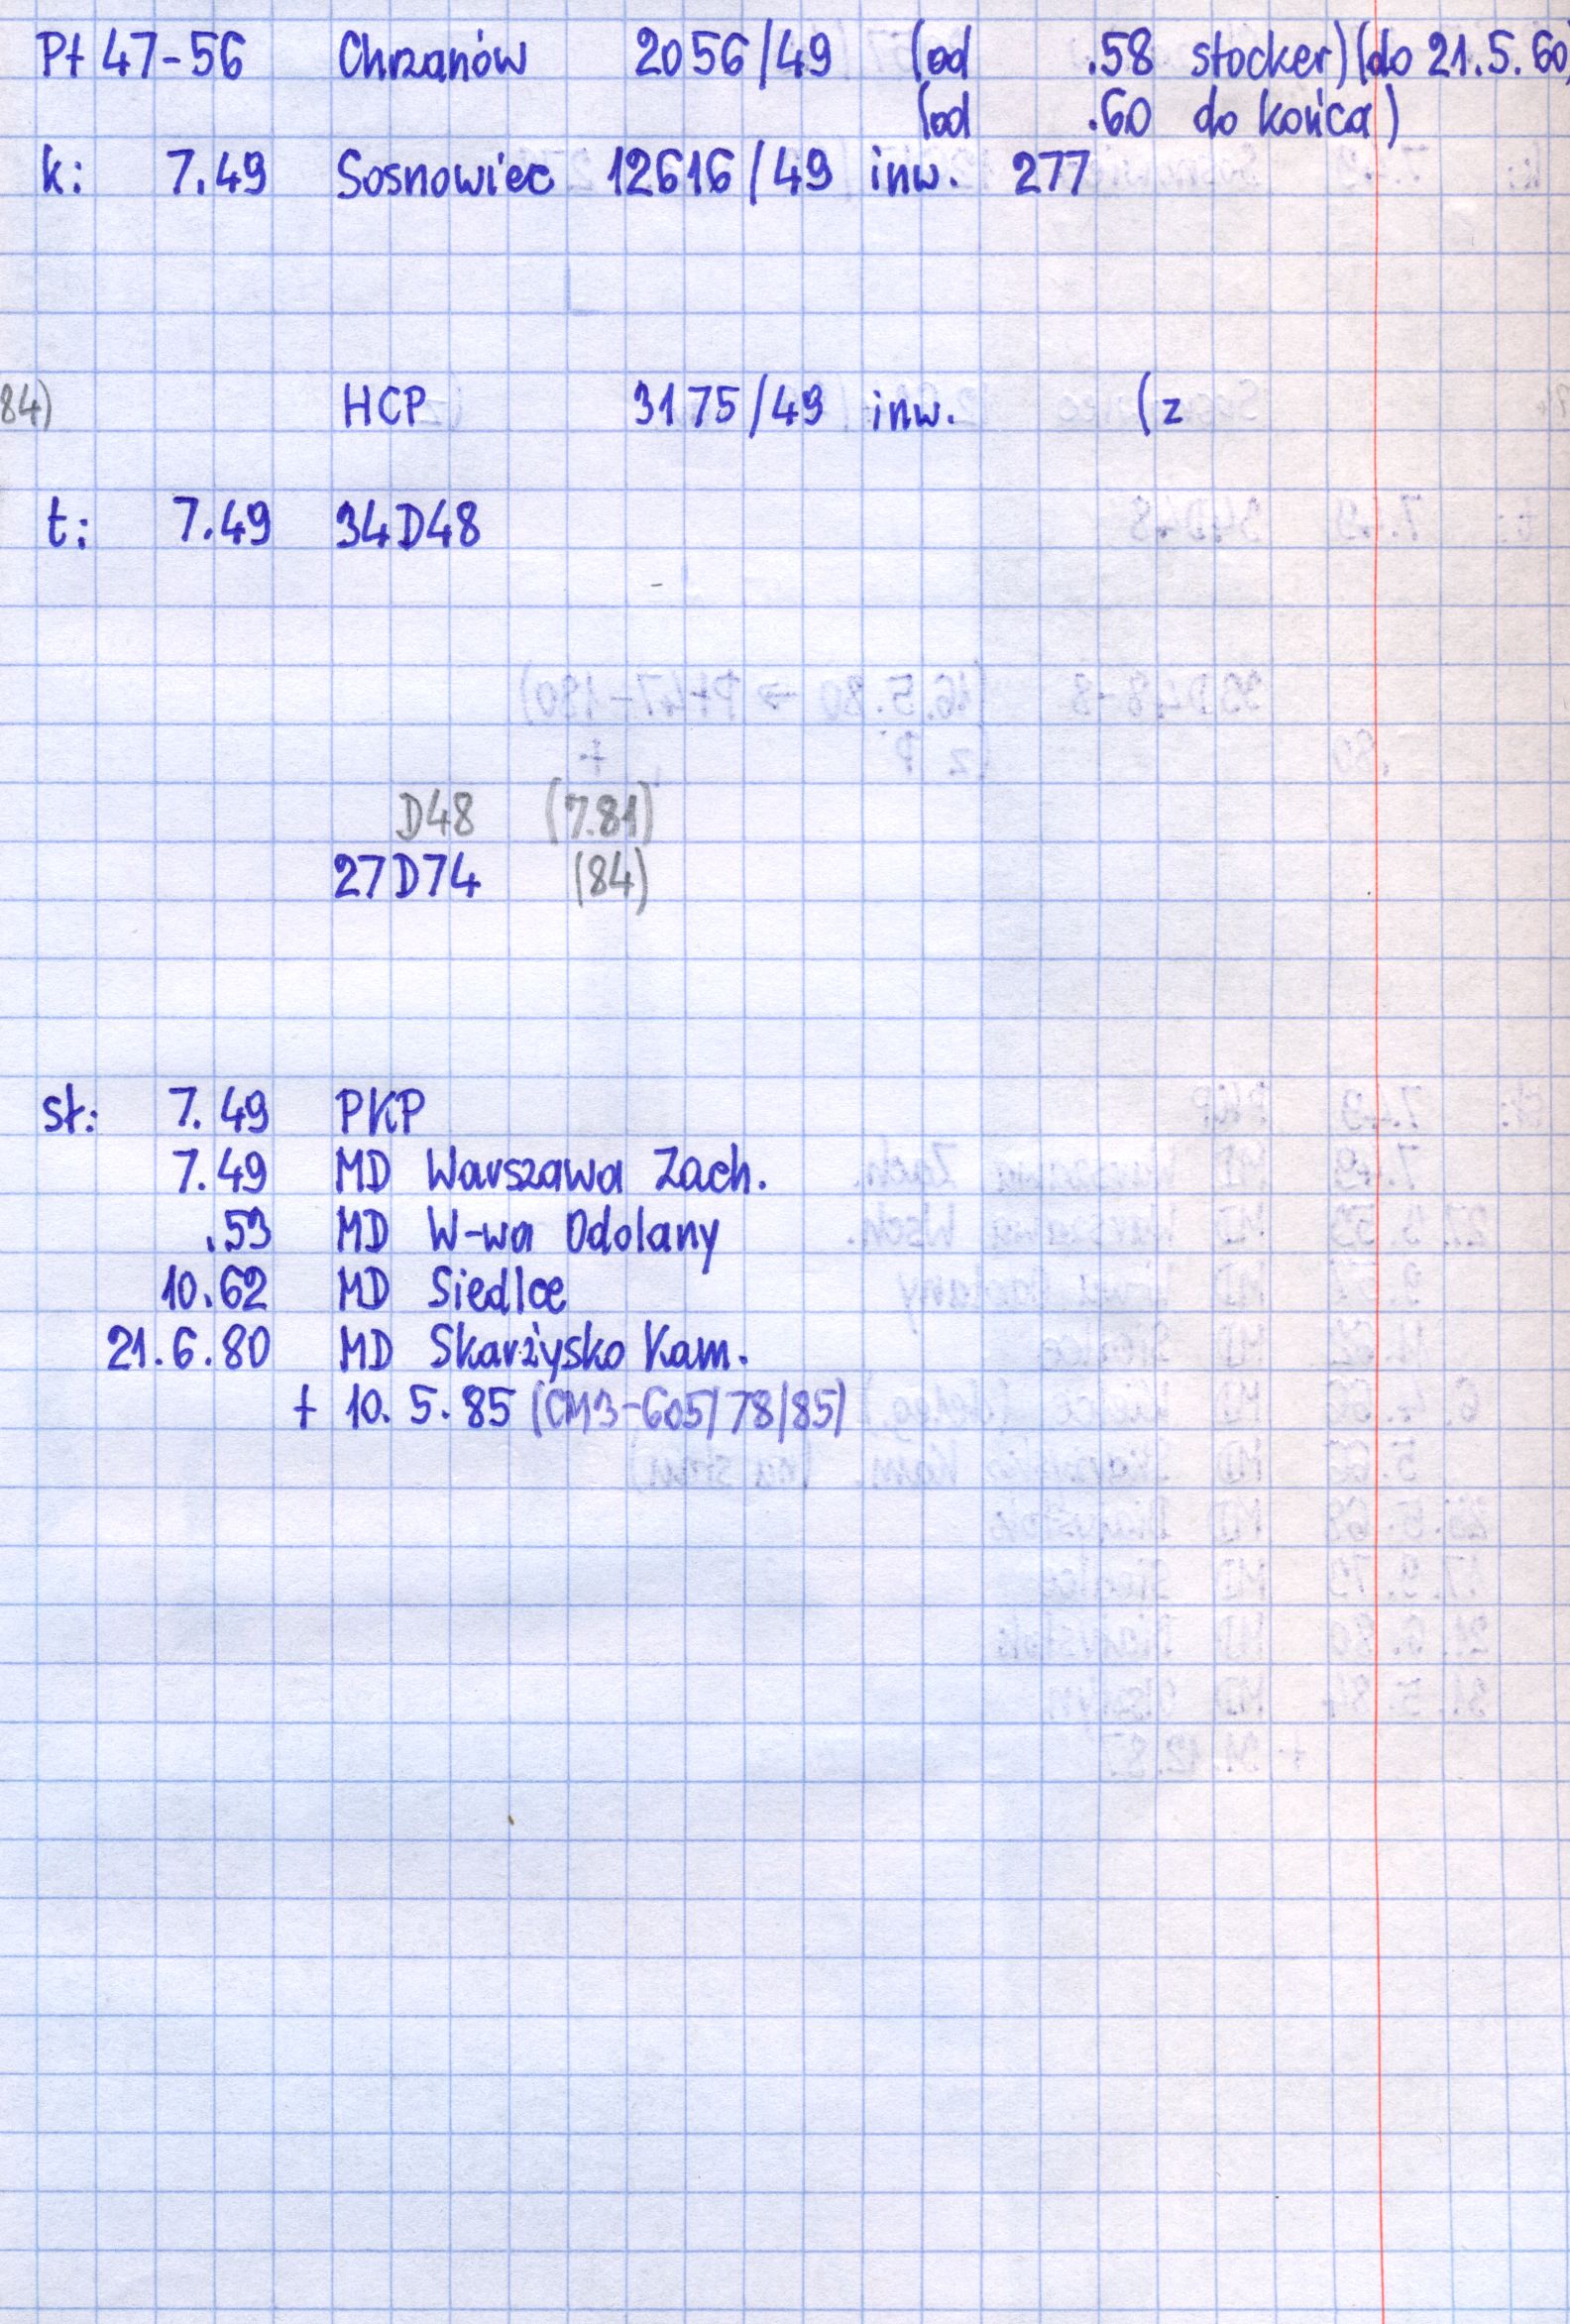 Pt 47-56 Chrzanów 2056/49 (od .58 stocker) (do 21.5.60)
(od .60 do końca)
k: 7.49 Sosnowiec 12616/49 inw. 277
84) HCP 3175/49 inw. (z
t: 7.49 34D48
D48 (7.81)
27D74 (84)
st: 7.49 PKP
7.49 MD Warszawa Zach.
.53 MD W-wa Odolany
10.62 MD Siedlce
21.6.80 MD Skarżysko Kam.
+ 10.5.85 (CM3-605/78/85)